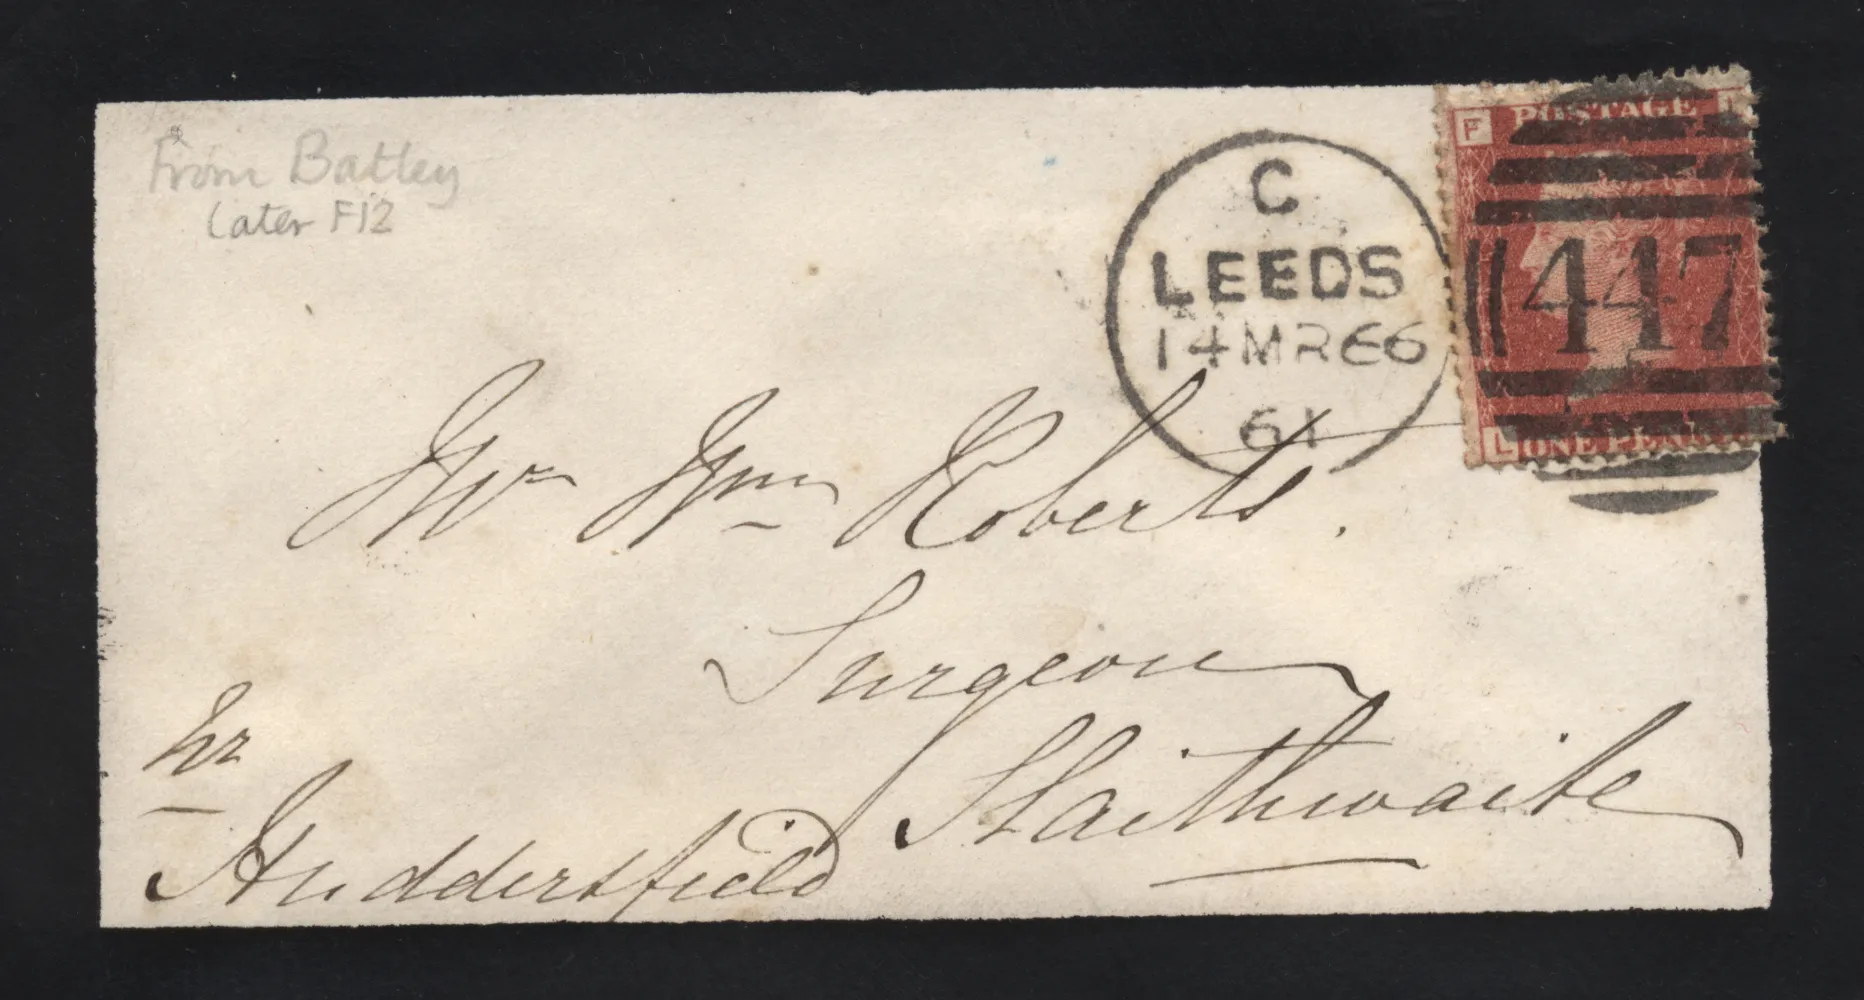 From Batley
Later F12
C
LEEDS
14 MR 66
61
F POSTAGE L
447
L ONE PENNY F
Mr Wm Roberts.
Surgeon
Slaithwaite
nr
Huddersfield